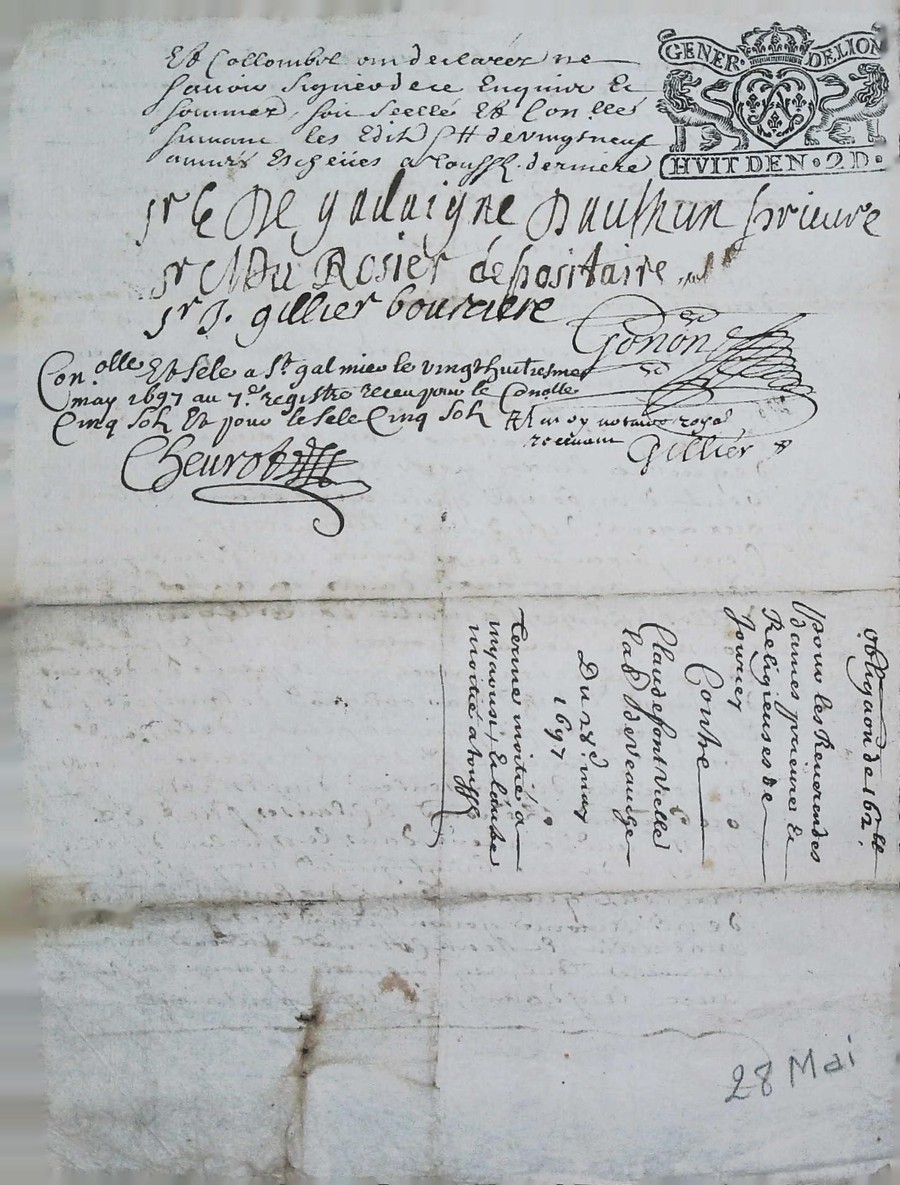 GENER. DE LION
HVIT DEN. 2 D.
Et Collombet ont declarez ne
scavoir signer de ce Enquis Et
sommez, soit scellé Et Con.llé
suivant les Edits
Sr C De galaigne Dauthun prieure
Sr M Du Rosier dépositaire
Sr J. gillier boursiere
Gonon
Con.olle Et Sele a St galmier le vingthuitiesme
may 1697 au 7.e registre receu pour le Conolle
Cinq solz Et pour le sele Cinq solz
Et moy notaire royal
recevant
Gillier
Cheurot
obligaon de 162 ll
pour les Reverendes
Dames prieure Et
Religieuses de
Jourcey
Contre
Claude fontvielle
Du 28.e may
1697
Terme moitié a
moitié a touss.
28 Mai